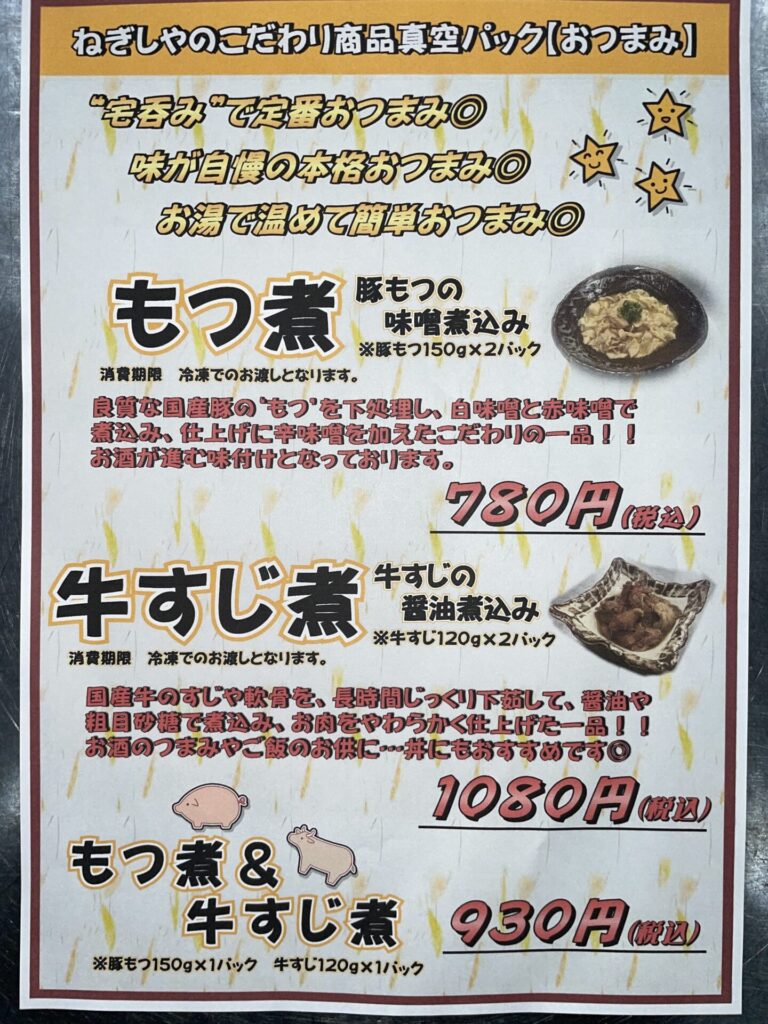 ねぎしやのこだわり商品真空パック【おつまみ】
“宅呑み”で定番おつまみ◎
味が自慢の本格おつまみ◎
お湯で温めて簡単おつまみ◎
もつ煮
豚もつの
味噌煮込み
※豚もつ150g×2パック
消費期限 冷凍でのお渡しとなります。
良質な国産豚の“もつ”を下処理し、白味噌と赤味噌で
煮込み、仕上げに辛味噌を加えたこだわりの一品！！
お酒が進む味付けとなっております。
780円(税込)
牛すじ煮
牛すじの
醤油煮込み
※牛すじ120g×2パック
消費期限 冷凍でのお渡しとなります。
国産牛のすじや軟骨を、長時間じっくり下茹して、醤油や
粗目砂糖で煮込み、お肉をやわらかく仕上げた一品！！
お酒のつまみやご飯のお供に…丼にもおすすめです◎
1080円(税込)
もつ煮＆
牛すじ煮
930円(税込)
※豚もつ150g×1パック 牛すじ120g×1パック